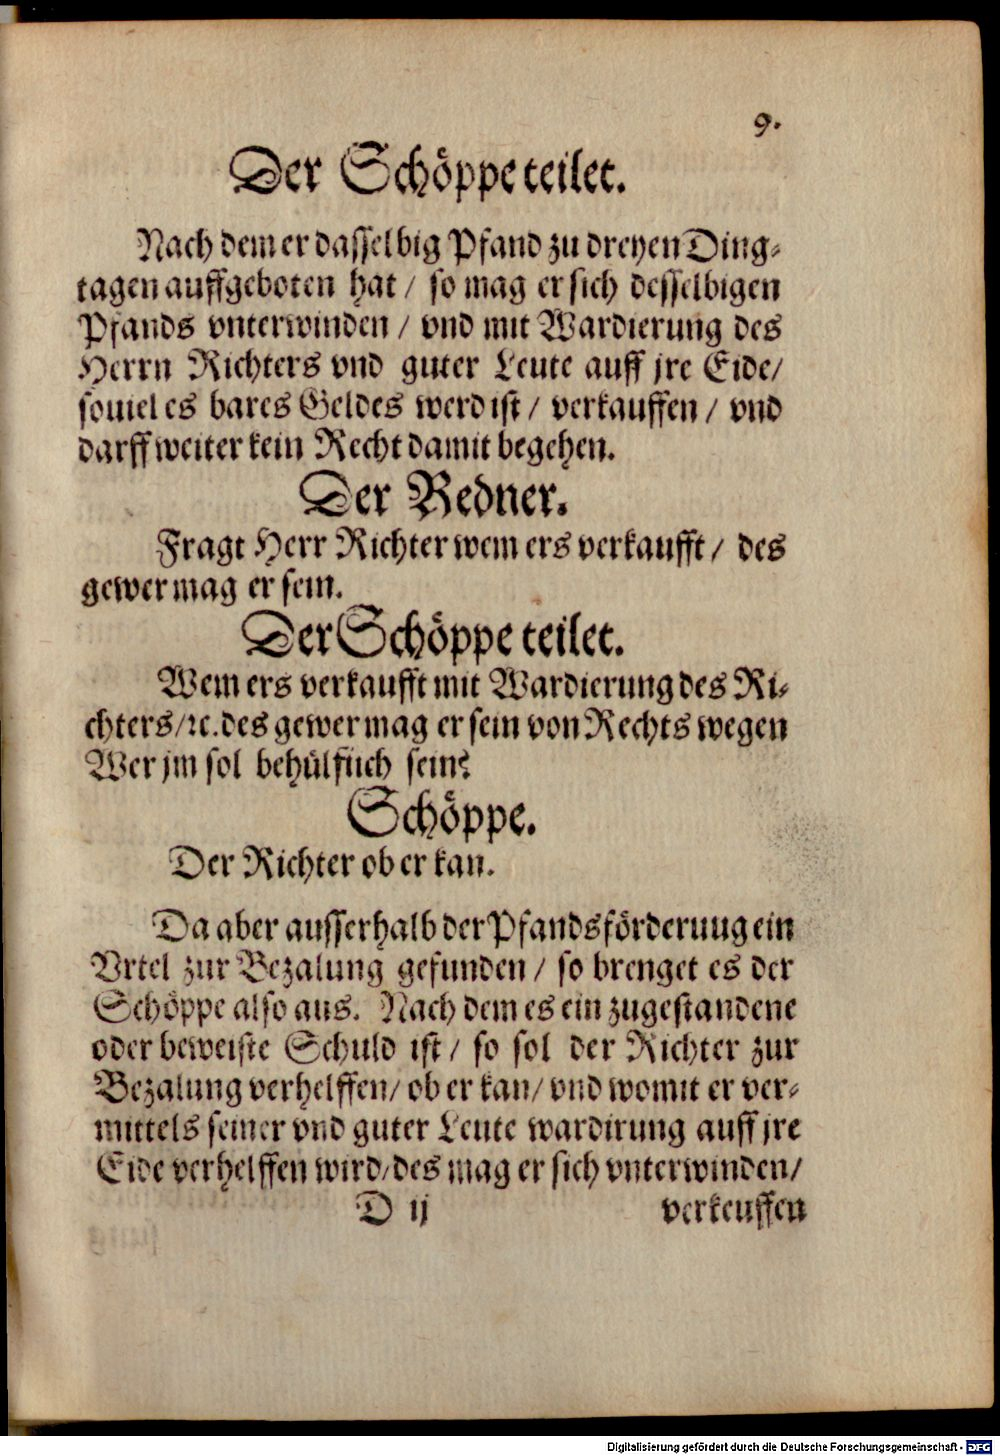 9.
Der Schöppe teilet.
Nach dem er dasselbig Pfand zu dreyen Ding-
tagen auffgeboten hat / so mag er sich desselbigen
Pfands vnterwinden / vnd mit Wardierung des
Herrn Richters vnd guter Leute auff jre Eide/
souiel es bares Geldes werd ist / verkauffen / vnd
darff weiter kein Recht damit begehen.
Der Redner.
Fragt Herr Richter wem ers verkaufft / des
gewer mag er sein.
Der Schöppe teilet.
Wem ers verkaufft mit Wardierung des Ri-
chters/ꝛc. des gewer mag er sein von Rechts wegen
Wer jm sol behülflich sein?
Schöppe.
Der Richter ob er kan.
Da aber ausserhalb der Pfandsförderung ein
Vrtel zur Bezalung gefunden / so brenget es der
Schöppe also aus. Nach dem es ein zugestandene
oder beweiste Schuld ist / so sol der Richter zur
Bezalung verhelffen/ ob er kan/ vnd womit er ver-
mittels seiner vnd guter Leute wardirung auff jre
Eide verhelffen wird/ des mag er sich vnterwinden/
D ij verkeuffen
Digitalisierung gefördert durch die Deutsche Forschungsgemeinschaft - DFG